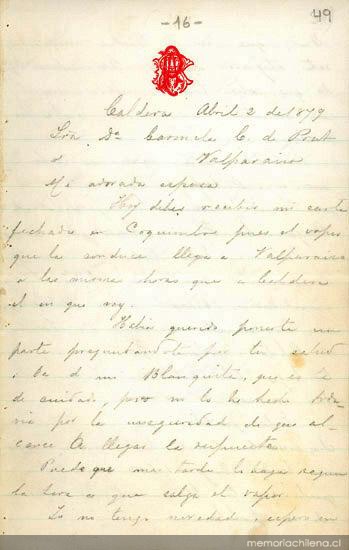 - 16 -
49
Caldera Abril 2 de 1879
Sra. Da. Carmela C. de Prat
Valparaiso
Mi adorada esposa
Hoy debes recibir mi carta
fechada en Coquimbo pues el vapor
que la conduce llega a Valparaiso
a las mismas horas que a Caldera
el en que voy.
Habia querido ponerte un
parte preguntándote por tu salud
i la de mi Blanquita, que es
de cuidado, pero no lo he hecho toda
via por la inseguridad de que al
cance a llegar la respuesta
Puede que mas tarde lo haga segun
la hora a que salga el vapor
Yo no tengo novedad, espero en
memoriachilena.cl